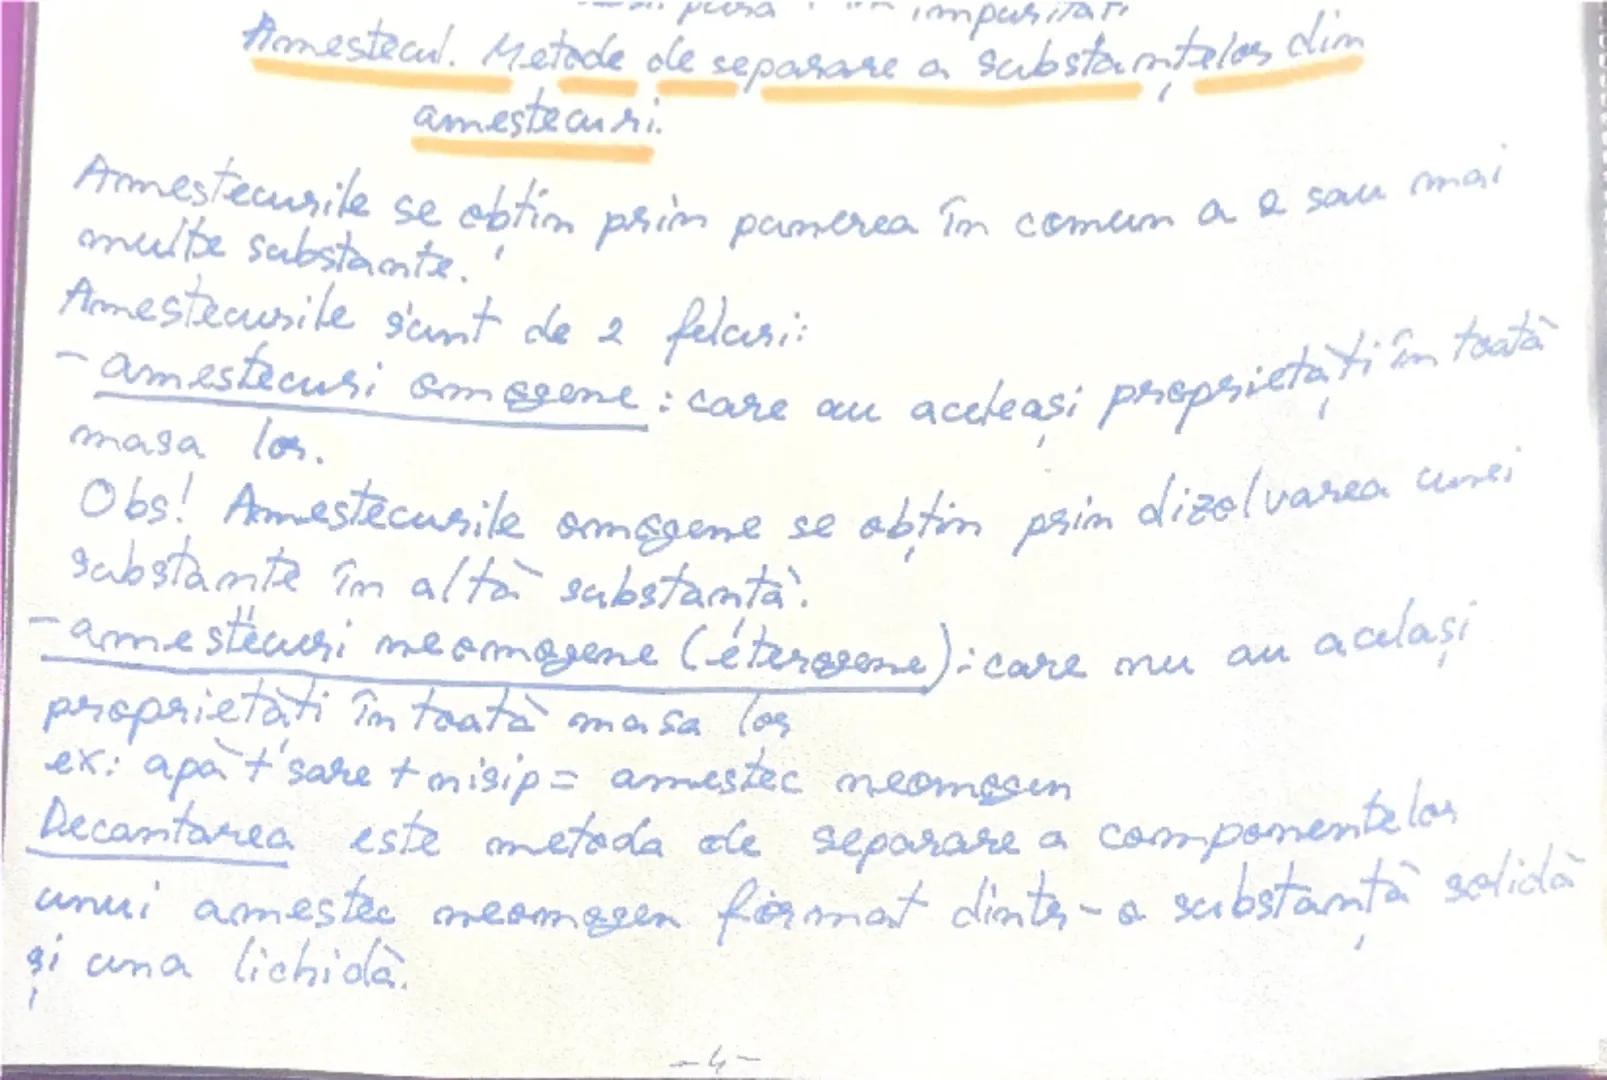 pură impurități
Amestecul. Metode de separare a substanțelor din
amestecuri.
Amestecurile se obțin prin punerea în comun a 2 sau mai
multe substante.
Amestecurile sunt de 2 feluri:
- amestecuri omogene: care au aceleași proprietăți în toată
masa lor.
Obs! Amestecurile omogene se obțin prin dizolvarea unei
substanțe în altă substanță.
- amestecuri neomogene (eterogene): care nu au același
proprietăți în toată masa lor
ex: apă + sare + nisip = amestec neomogen
Decantarea este metoda de separare a componentelor
unui amestec neomogen format dintr-o substanță solidă
și una lichidă.
-4-